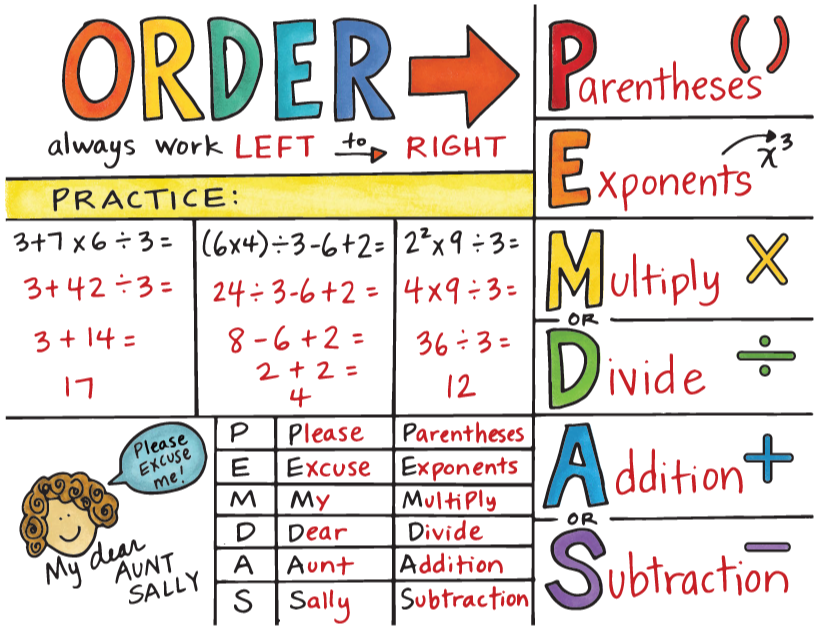 ORDER
always work LEFT to RIGHT
PRACTICE:
3+7×6÷3=
3+42÷3=
3+14=
17
(6×4)÷3-6+2=
24÷3-6+2=
8-6+2=
2+2=
4
2²×9÷3=
4×9÷3=
36÷3=
12
Please
Excuse
me!
My dear
AUNT
SALLY
P Please Parentheses
E Excuse Exponents
M My Multiply
D Dear Divide
A Aunt Addition
S Sally Subtraction
Parentheses ( )
Exponents x³
Multiply ×
OR
Divide ÷
Addition +
OR
Subtraction −